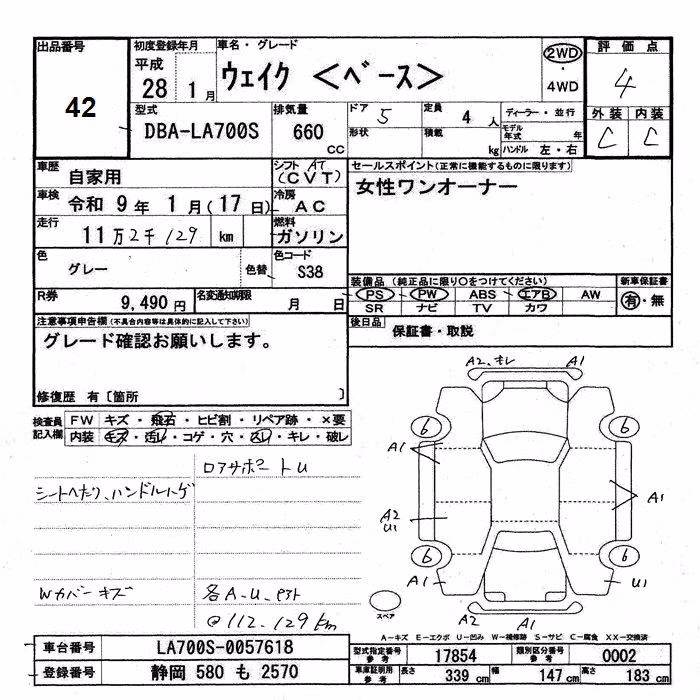 出品番号
42
初度登録年月
平成
28 1月
車名・グレード
ウェイク <ベース>
2WD
・
4WD
評価点
4
外装 内装
C C
型式
DBA-LA700S
排気量
660
CC
ドア 5
形状
定員
4 人
積載
kg
ディーラー・並行
モデル年式 年
ハンドル 左・右
車歴
自家用
シフト AT
(CVT)
車検
令和 9年 1月(17日)
冷房
AC
走行
11万2千129 km
燃料
ガソリン
色
グレー
色替
色コード
S38
R券
9,490円
名変通知期限
月 日
セールスポイント(正常に機能するものに限ります)
女性ワンオーナー
装備品(純正品に限り○をつけてください)
新車保証書
PS PW ABS エアB AW
SR ナビ TV カワ
有・無
後日品
保証書・取説
注意事項申告欄(不具合内容等は具体的に記入して下さい)
グレード確認お願いします。
修復歴 有〔箇所 〕
検査員
記入欄
FW キズ・飛石・ヒビ割・リペア跡・×要
内装 キズ・汚レ・コゲ・穴・スレ・キレ・破レ
ロアサポート U
シートヘタリ、ハンドルハゲ
Wカバーキズ
各A.U.
@112.129km
A2.キレ A1
6 6
A1
A1
A2
U1
6 6
A1 U1
A2 A1
スペア
A-キズ E-エクボ U-凹み W-補修跡 S-サビ C-腐食 XX-交換済
車台番号
LA700S-0057618
登録番号
静岡 580 も 2570
型式指定番号
参考
17854
類別区分番号
参考
0002
車庫証明用
参考
長さ 339 cm
幅 147 cm
高さ 183 cm